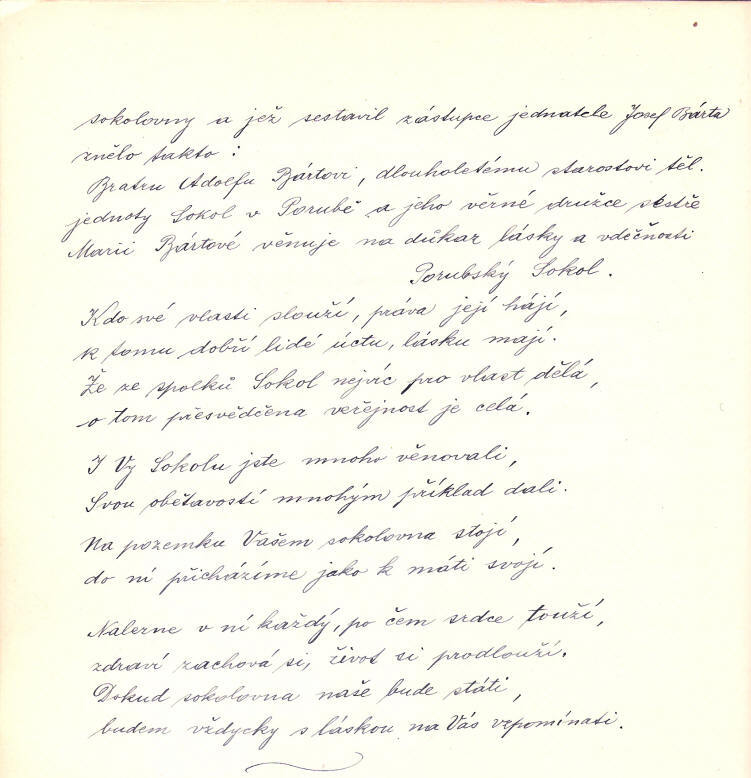 sokolovny a jež sestavil zástupce jednatele Josef Bárta
znělo takto :
Bratru Adolfu Bártovi, dlouholetému starostovi těl.
jednoty Sokol v Porubě a jeho věrné družce sestře
Marii Bártové věnuje na důkaz lásky a vděčnosti
Porubský Sokol.
Kdo své vlasti slouží, práva její hájí,
k tomu dobří lidé úctu, lásku mají.
Že ze spolků Sokol nejvíc pro vlast dělá,
o tom přesvědčena veřejnost je celá.
I Vy Sokolu jste mnoho věnovali,
Svou obětavostí mnohým příklad dali.
Na pozemku Vašem sokolovna stojí,
do ní přicházíme jako k máti svojí.
Nalezne v ní každý, po čem srdce touží,
zdraví zachová si, život si prodlouží.
Dokud sokolovna naše bude státi,
budem vždycky s láskou na Vás vzpomínati.